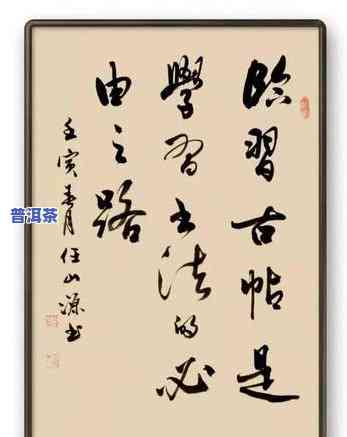 臨習古帖是
學習书法的必
由之路
壬寅春月任山源书
普洱茶